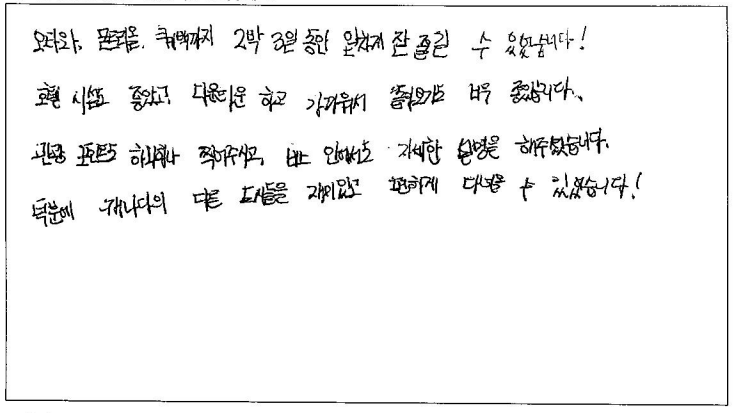 오타와, 몬트리올, 퀘백까지 2박 3일 동안 알차게 잘 즐길 수 있었습니다!
호텔 시설도 좋았고, 다운타운 하고 가까워서 놀러가기도 너무 좋았습니다.
관광 포인트도 하나하나 찍어주시고, 버스 안에서도 자세한 설명을 해주셨습니다.
덕분에 캐나다의 다른 도시들을 재미있고 편하게 다녀올 수 있었습니다!